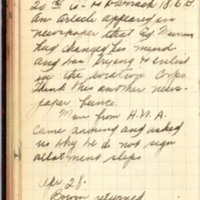 An article appeared in
newspaper that
has changed his mind
and has trying to enlist
in the aviation Corps
Think this another news-
paper bunce.
Man from H.N.A.
came around and asked
us why he do not sign
allotment slips
Apr 28.
returned